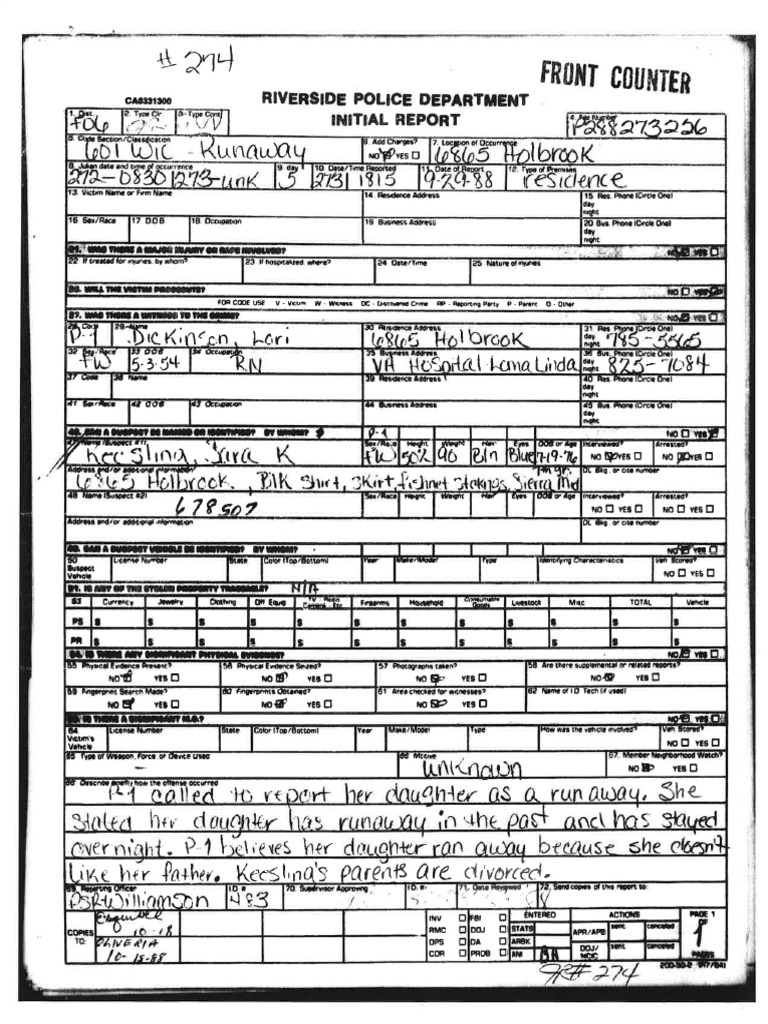 # 274
FRONT COUNTER
CA0331300
RIVERSIDE POLICE DEPARTMENT
INITIAL REPORT
1. Dist. 2. Type Clr 3. Type Cont 4. File Number
F06 P288273256
5. Code Section/Classification 6. Add Charges? 7. Location of Occurrence
601 WIC - Runaway NO YES 6865 Holbrook
8. Julian date and time of occurrence 9. day 10. Date/Time Reported 11. Date of Report 12. Type of Premises
272-0830/273-unk 5 273/1815 9-29-88 residence
13. Victim Name or Firm Name 14. Residence Address 15 Res. Phone (Circle One)
day
night
16 Sex/Race 17 DOB 18. Occupation 19 Business Address 20 Bus. Phone (Circle One)
day
night
21. WAS THERE A MAJOR INJURY OR RAPE INVOLVED? NO YES
22 If treated for injuries, by whom? 23 If hospitalized, where? 24 Date/Time 25 Nature of injuries
26. WILL THE VICTIM PROSECUTE? NO YES
FOR CODE USE V - Victim W - Witness DC - Discovered Crime RP - Reporting Party P - Parent O - Other
27. WAS THERE A WITNESS TO THE CRIME? NO YES
28. Code 29. Name 30 Residence Address 31 Res. Phone (Circle One)
P-1 Dickinson, Lori 6865 Holbrook day night 785-5565
32 Sex/Race 33 DOB 34 Occupation 35 Business Address 36 Bus. Phone (Circle One)
FW 5-3-54 RN VA Hospital-Loma Linda day night 825-7084
37 Code 38 Name 39 Residence Address 40 Res. Phone (Circle One)
day
night
41 Sex/Race 42 DOB 43 Occupation 44 Business Address 45 Bus. Phone (Circle One)
day
night
46. CAN A SUSPECT BE NAMED OR IDENTIFIED? BY WHOM? P-1 NO YES
47 Name (Suspect #1) Sex/Race Height Weight Hair Eyes DOB or Age Interviewed? Arrested?
Keesling, Sara K FW 502 90 Bln Blue 7-19-76 NO YES NO YES
Address and/or additional information DL Bkg. or cite number
6865 Holbrook, Blk Shirt, skirt, fishnet stokngs, Sierra Md 7th gr.
48 Name (Suspect #2) Sex/Race Height Weight Hair Eyes DOB or Age Interviewed? Arrested?
678507 NO YES NO YES
Address and/or additional information DL Bkg. or cite number
49. CAN A SUSPECT VEHICLE BE IDENTIFIED? BY WHOM? NO YES
50 Suspect Vehicle License Number State Color (Top/Bottom) Year Make/Model Type Identifying Characteristics Veh Stored?
NO YES
51. IS ANY OF THE STOLEN PROPERTY TRACEABLE? N/A
53 Currency Jewelry Clothing Off Equip TV - Radio Camera - Etc Firearms Household Consumable Goods Livestock Misc TOTAL Vehicle
PS $ $ $ $ $ $ $ $ $ $ $ $
PR $ $ $ $ $ $ $ $ $ $ $ $
54. IS THERE ANY SIGNIFICANT PHYSICAL EVIDENCE? NO YES
55 Physical Evidence Present? 56 Physical Evidence Seized? 57 Photographs taken? 58 Are there supplemental or related reports?
NO YES NO YES NO YES NO YES
59 Fingerprint Search Made? 60 Fingerprints Obtained? 61 Area checked for witnesses? 62 Name of ID Tech (if used)
NO YES NO YES NO YES
63. IS THERE A SIGNIFICANT M.O.? NO YES
64. Victim's Vehicle License Number State Color (Top/Bottom) Year Make/Model Type How was the vehicle involved? Veh Stored?
NO YES
65 Type of Weapon, Force, or Device Used 66 Motive 67. Member Neighborhood Watch?
- unknown NO YES
68 Describe briefly how the offense occurred
P-1 called to report her daughter as a runaway. She
stated her daughter has runaway in the past and has stayed
overnight. P-1 believes her daughter ran away because she doesn't
like her father. Keesling's parents are divorced.
69. Reporting Officer ID # 70. Supervisor Approving ID #. 71. Date Reviewed 72. Send copies of this report to:
PSR Williamson 483
COPIES TO: Esquibel 10-18
OLIVERIA 10-18-88
INV FBI ENTERED ACTIONS PAGE 1
RMC DOJ STATS APR/APB sent canceled OF 1
DPS DA ARBK DOJ/NCIC sent canceled
COR PROB ANI PAGES
200-30-2 (R7/84)
JR# 274